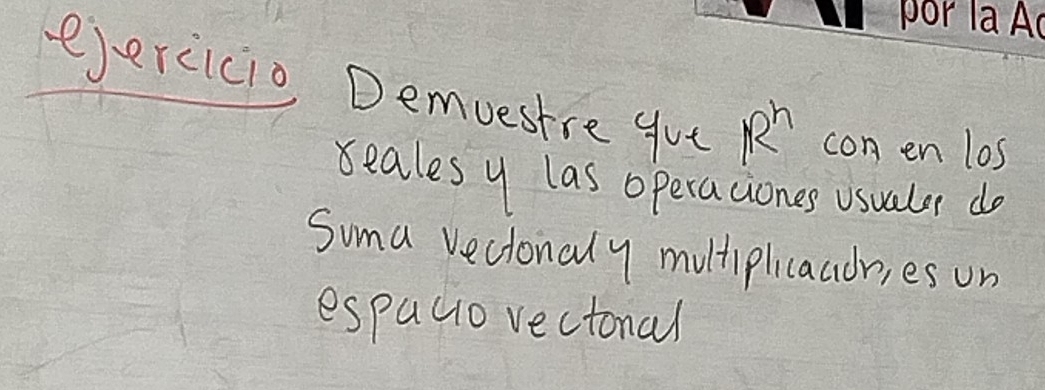 por la Ac
ejercicio
Demuestre que ℝⁿ con en los
reales y las operaciones usuales de
Suma vectorial y multiplicación, es un
espacio vectorial